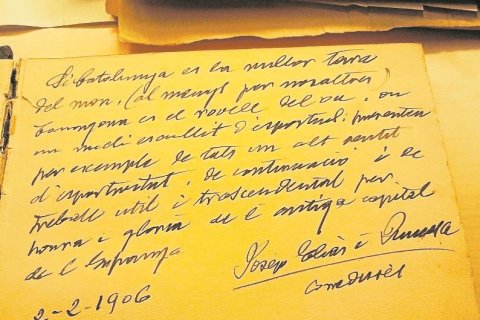 Si Catalunya es la millor terra
del mon, (al menys per nosaltres)
Tarragona es el rovell de l'ou, en
un medi escullit d'esportmd. presenten
per exemple de tots un alt sentit
d'esportivitat, de continuació i de
treball util i trascendental per
honra e gloria de l'antiga capital
de l'Espanya.
Josep Elias i Juncosa
Corredisses
2-2-1906